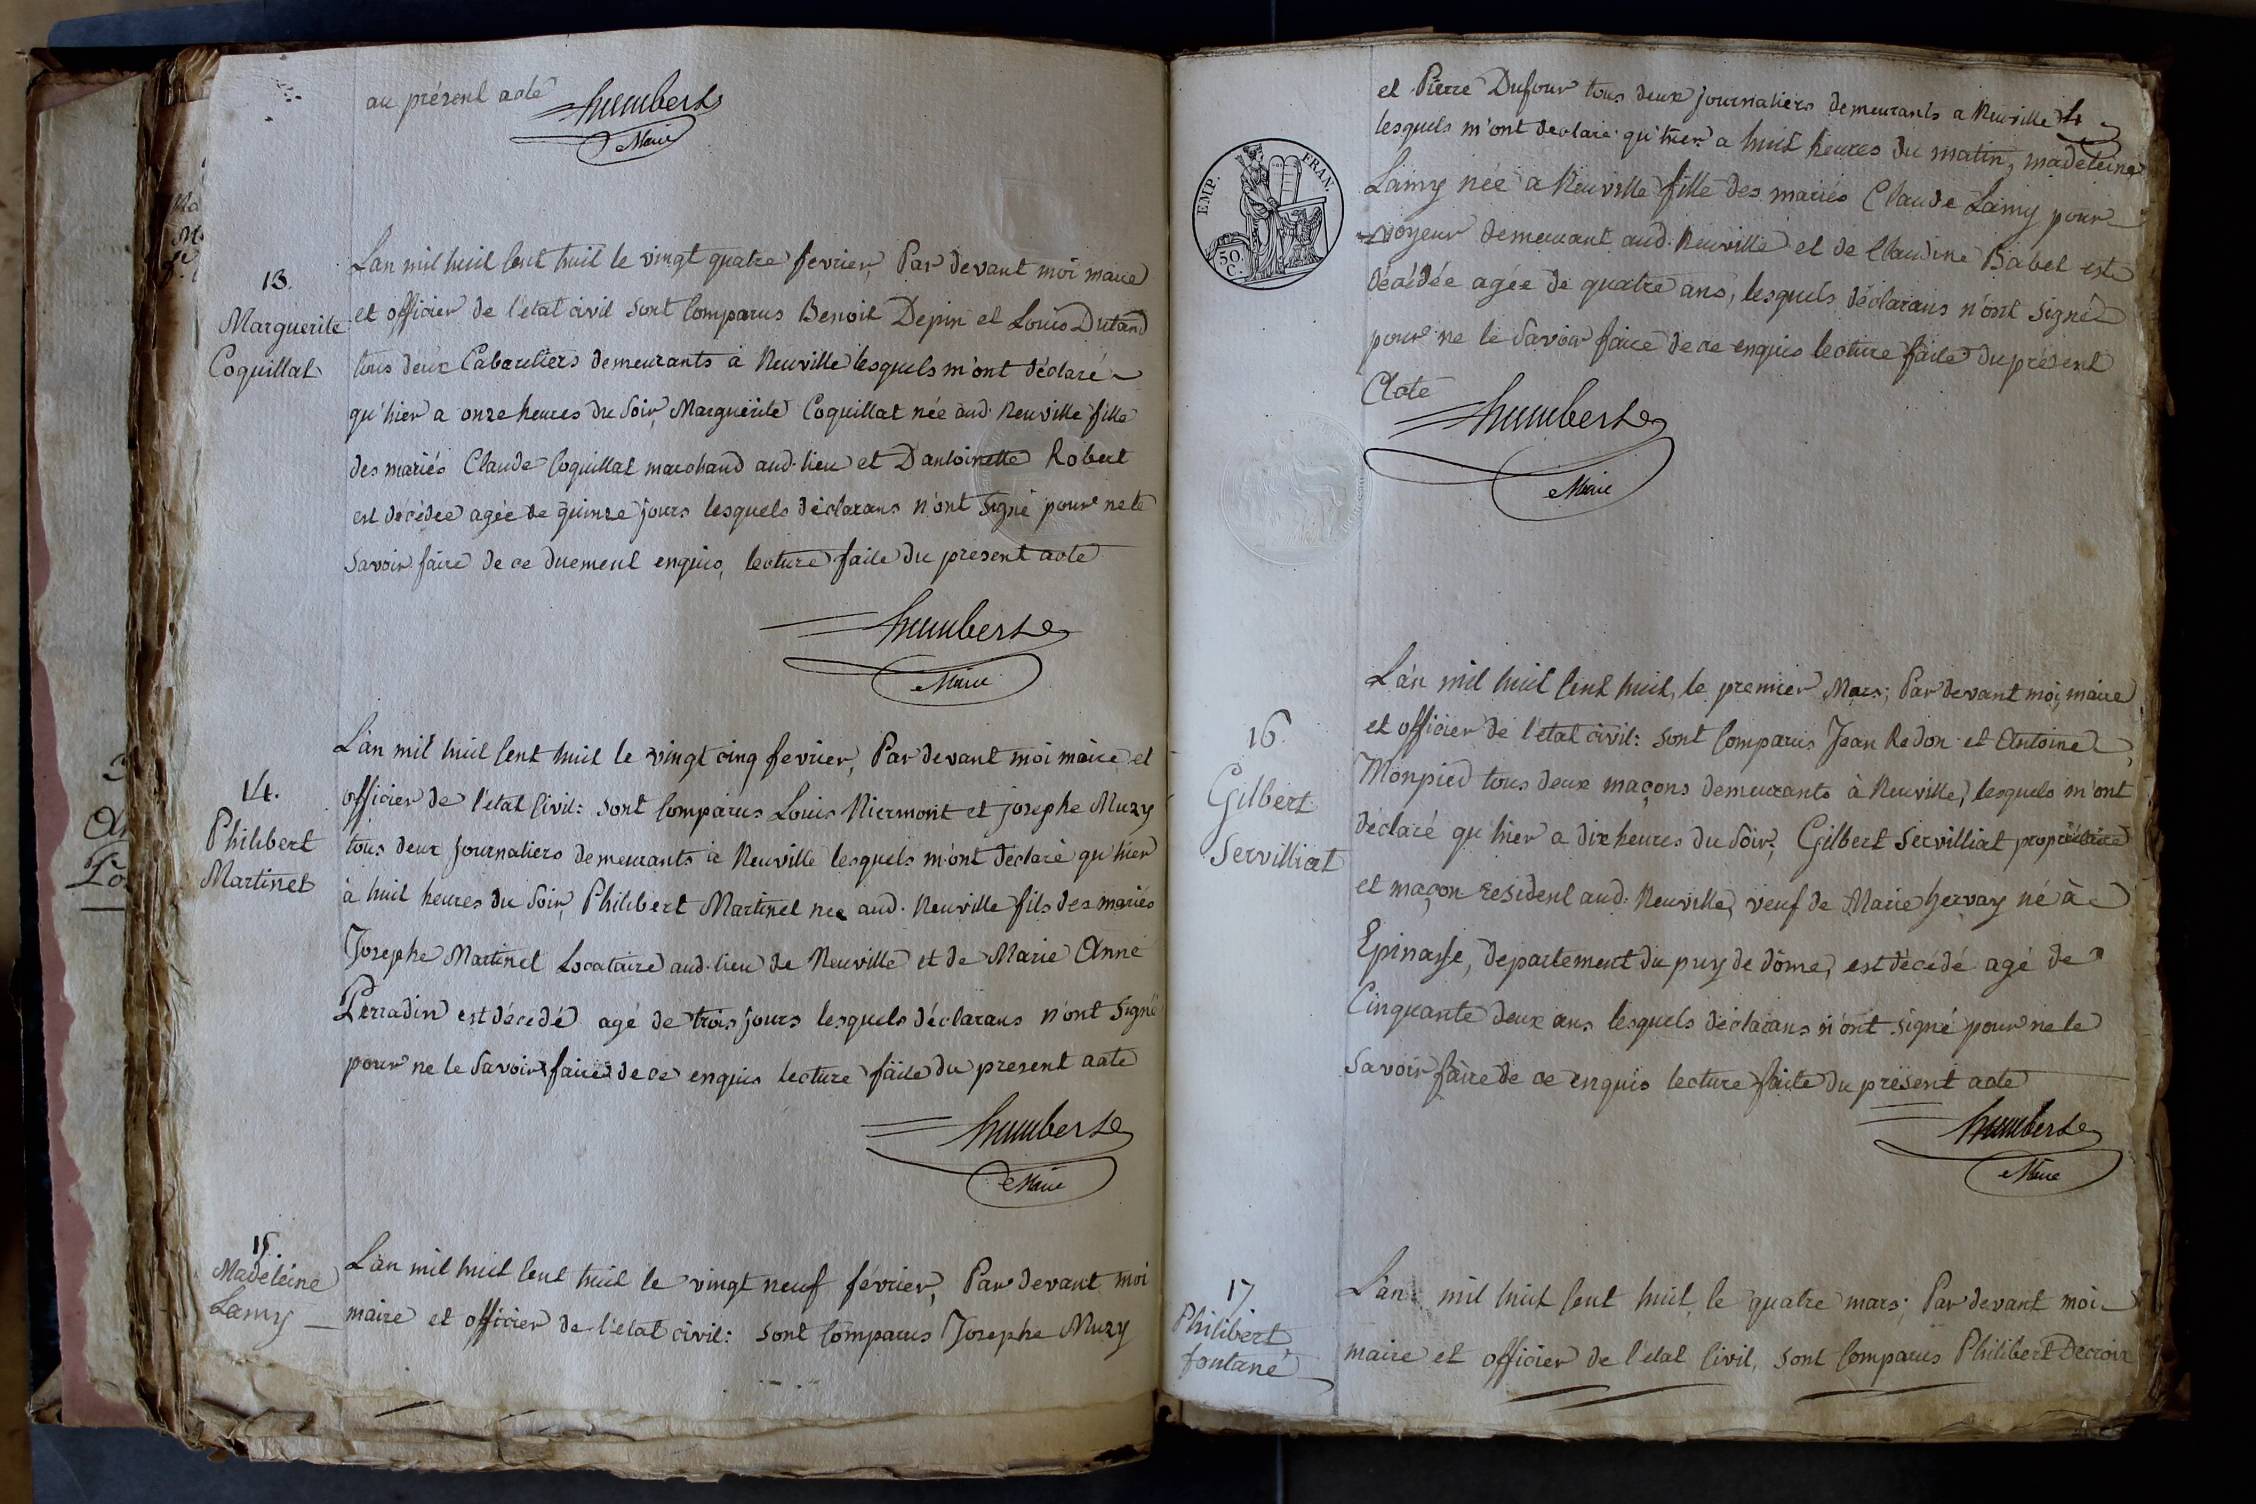 au présent acte
humbert
Maire
13.
Marguerite
Coquillat
L'an mil huit Cent huit le vingt quatre fevrier, Par devant moi maire
et officier de l'état civil sont Comparus Benoit Depin et Louis Dutand
tous deux Cabaretiers demeurants à Neuville lesquels m'ont déclaré
qu'hier a onze heures du soir, Marguerite Coquillat née aud. Neuville fille
des mariés Claude Coquillat marchand aud. lieu et D'antoinette Robert
est décédée agée de quinze jours lesquels déclarans n'ont signé pour ne le
savoir faire de ce duement enquis, lecture faite du present acte
humbert
Maire
14.
Philibert
Martinet
L'an mil huit Cent huit le vingt cinq fevrier, Par devant moi maire et
officier de l'état Civil: sont Comparus Louis Niermont et josephe Muzy
tous deux journaliers demeurants à Neuville lesquels m'ont déclaré qu'hier
à huit heures du soir, Philibert Martinet nee aud. Neuville fils des mariés
Josephe Martinet Locataire aud. lieu de Neuville et de Marie Anne
Perradin est décedé agé de trois jours lesquels déclarans n'ont signé
pour ne le savoir faire de ce enquis lecture faite du present acte
humbert
Maire
15.
Madeleine
Lamy
L'an mil huit Cent huit le vingt neuf février, Par devant moi
maire et officier de l'état civil: sont Comparus Josephe Muzy
et Pierre Dufour tous deux journaliers demeurants a Neuville
lesquels m'ont declaré qu'hier a huit heures du matin, madeleine
EMP. FRAN.
50.
C.
Lamy née a Neuville fille des mariés Claude Lamy pour
voyeur demeurant aud. Neuville et de Claudine Babet est
décédée agée de quatre ans, lesquels déclarans n'ont signé
pour ne le savoir faire de ce enquis lecture faite du présent
Acte
humbert
Maire
16.
Gilbert
Servilliat
L'an mil huit Cent huit, le premier Mars; Par devant moi, maire
et officier de l'état civil: sont Comparus Jean Redon et Antoine
Monpied tous deux maçons demeurants à Neuville, lesquels m'ont
déclaré qu'hier a dix heures du soir, Gilbert Servilliat propriétaire
et maçon resident aud. Neuville, veuf de Marie hervay né à
Epinasse, departement du puy de dôme, est décédé agé de
Cinquante deux ans lesquels déclarans n'ont signé pour ne le
savoir faire de ce enquis lecture faite du présent acte
humbert
Maire
17
Philibert
fontané
L'an mil huit Cent huit, le quatre mars; Par devant moi
maire et officier de l'état Civil, sont Comparus Philibert Decroix